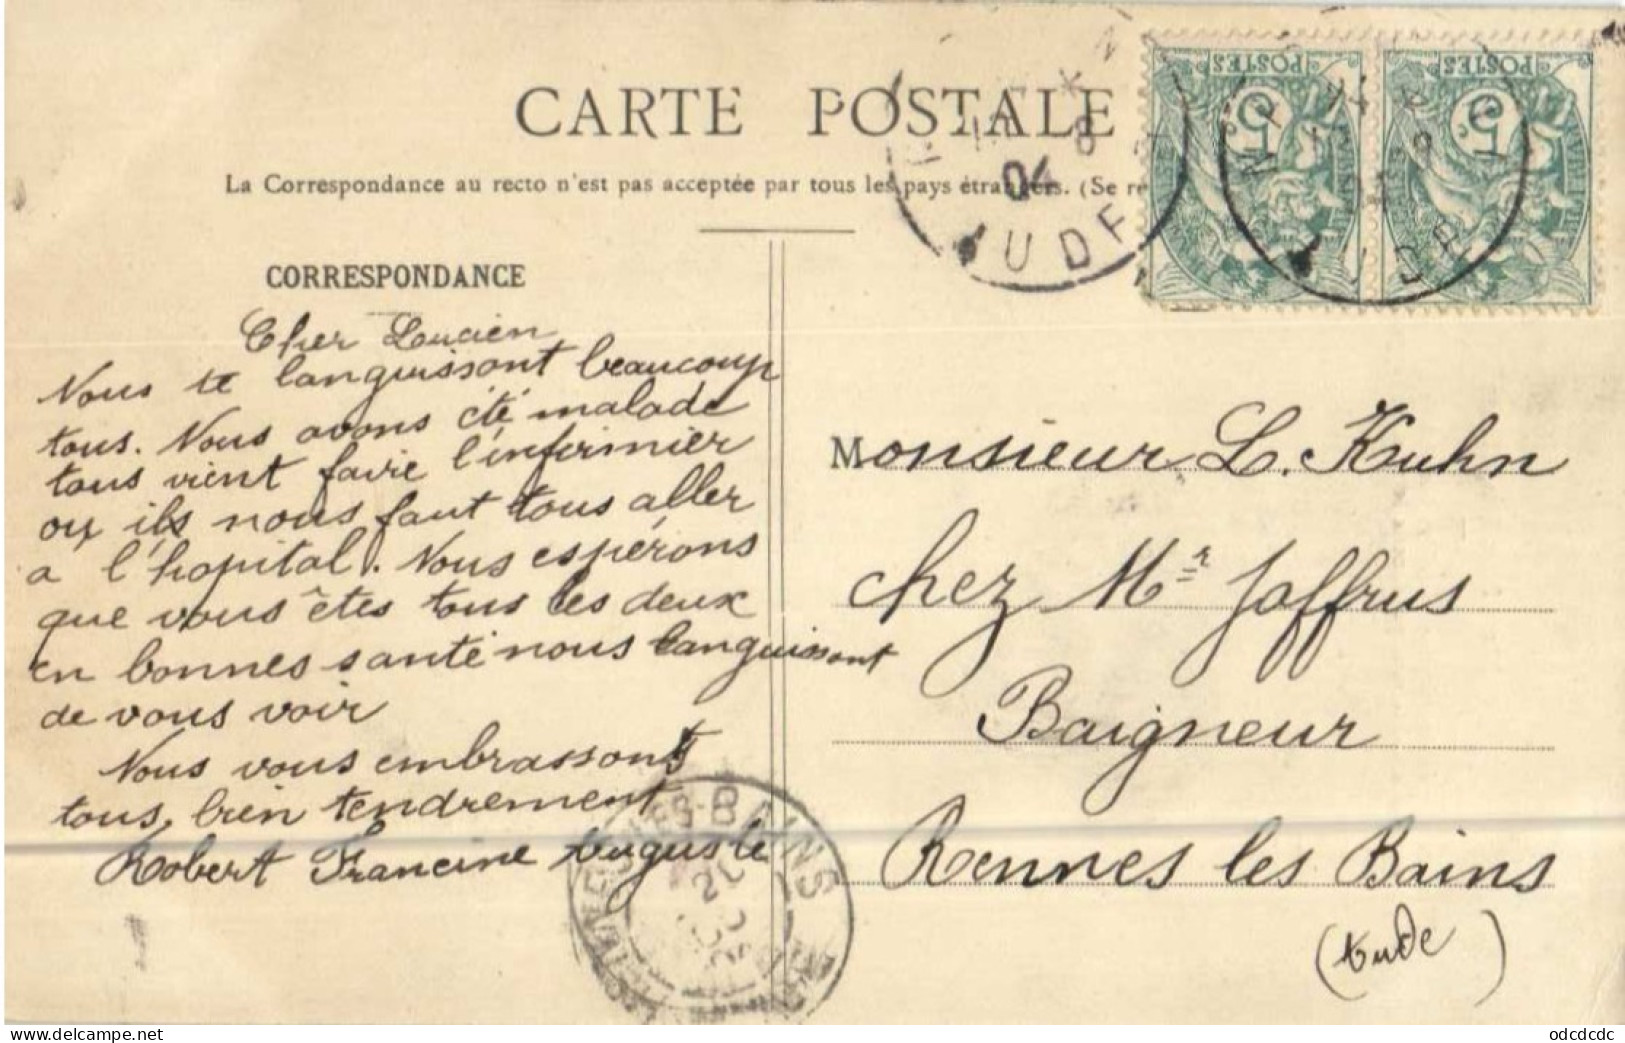 CARTE POSTALE
La Correspondance au recto n'est pas acceptée par tous les pays étrangers. (Se re
POSTES
5c
POSTES
5c
04
AUDE
AUDE
CORRESPONDANCE
Cher Lucien
Nous te languissont beaucoup
tous. Nous avons été malade
tous vient faire l'infirmier
ou ils nous faut tous aller
a l'hopital. Nous espérons
que vous êtes tous les deux
en bonnes santé nous languissont
de vous voir
Nous vous embrassons
tous, bien tendrement
Robert Francine Auguste
Monsieur L. Kuhn
chez Mr Jaffrus
Baigneur
Rennes les Bains
(Aude)
LES-BAINS
https://www.delcampe.net/
odcdcdc